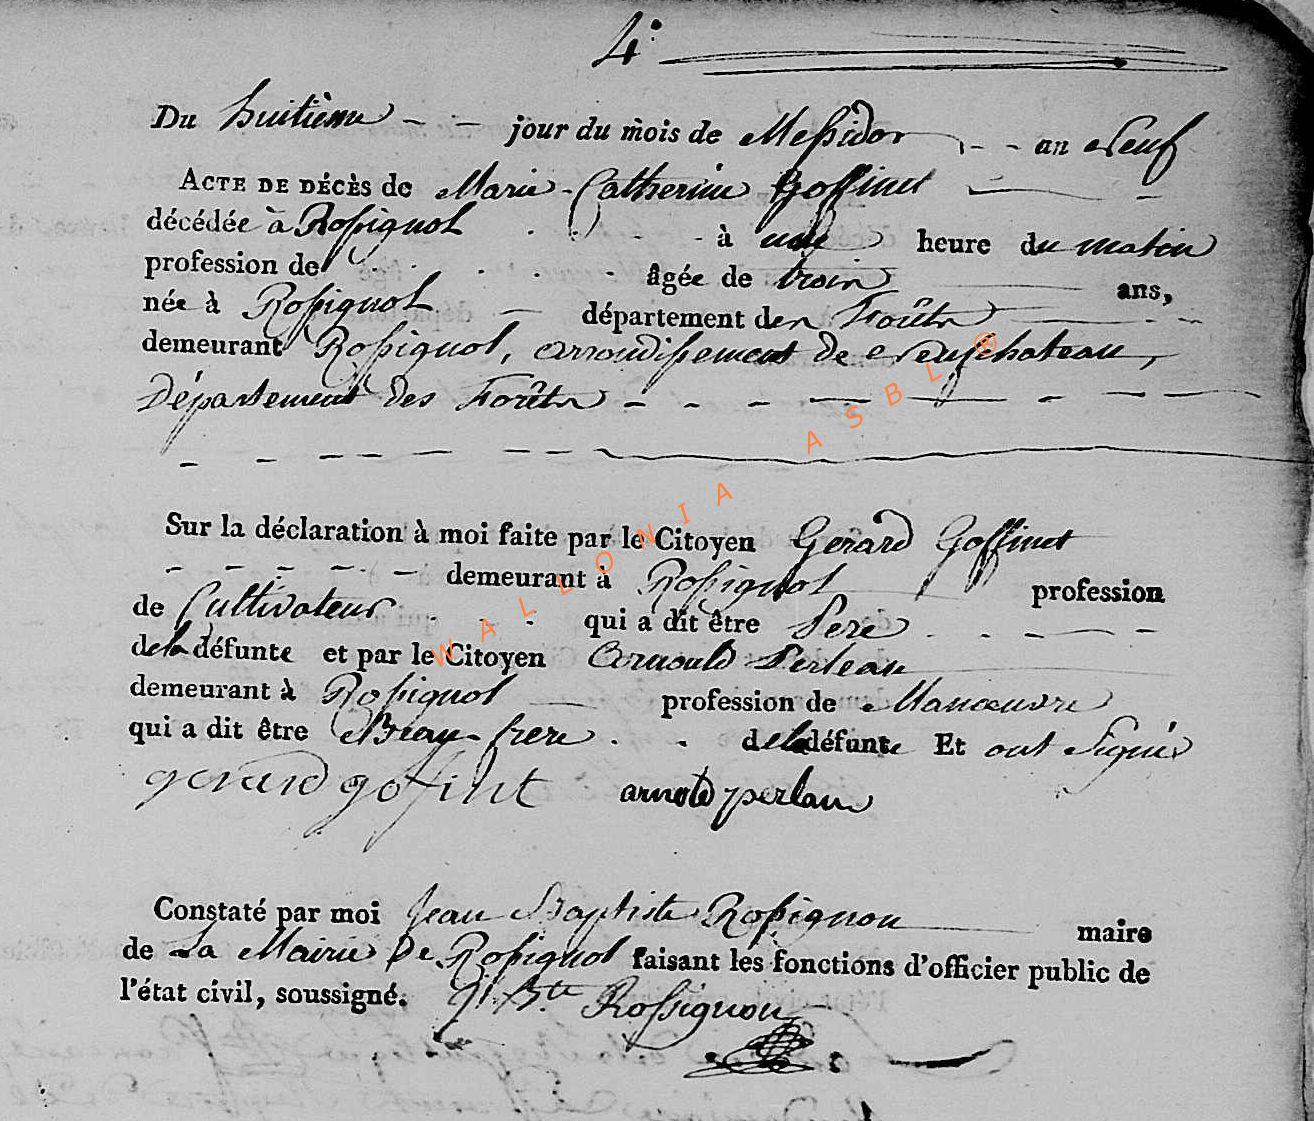 4°
Du huitieme jour du mois de Messidor an Neuf
ACTE DE DÉCÈS de Marie Catherine Goffinet
décédée à Rossignol à une heure du matin
profession de âgée de trois ans,
née à Rossignol département des Forêts
demeurant Rossignol, arrondissement de Neufchateau,
Département des Forêts
Sur la déclaration à moi faite par le Citoyen Gerard Goffinet
demeurant à Rossignol profession
de Cultivateur qui a dit être Pere
de la défunte et par le Citoyen Arnould Perleau
demeurant à Rossignol profession de Manoeuvre
qui a dit être Beau-frere de la défunte Et ont Signés
gerard gofinet arnold perlau
Constaté par moi Jean Baptiste Rossignon maire
de La Mairie de Rossignol faisant les fonctions d'officier public de
l'état civil, soussigné. J. Bte Rossignon
WALLONIA ASBL ®